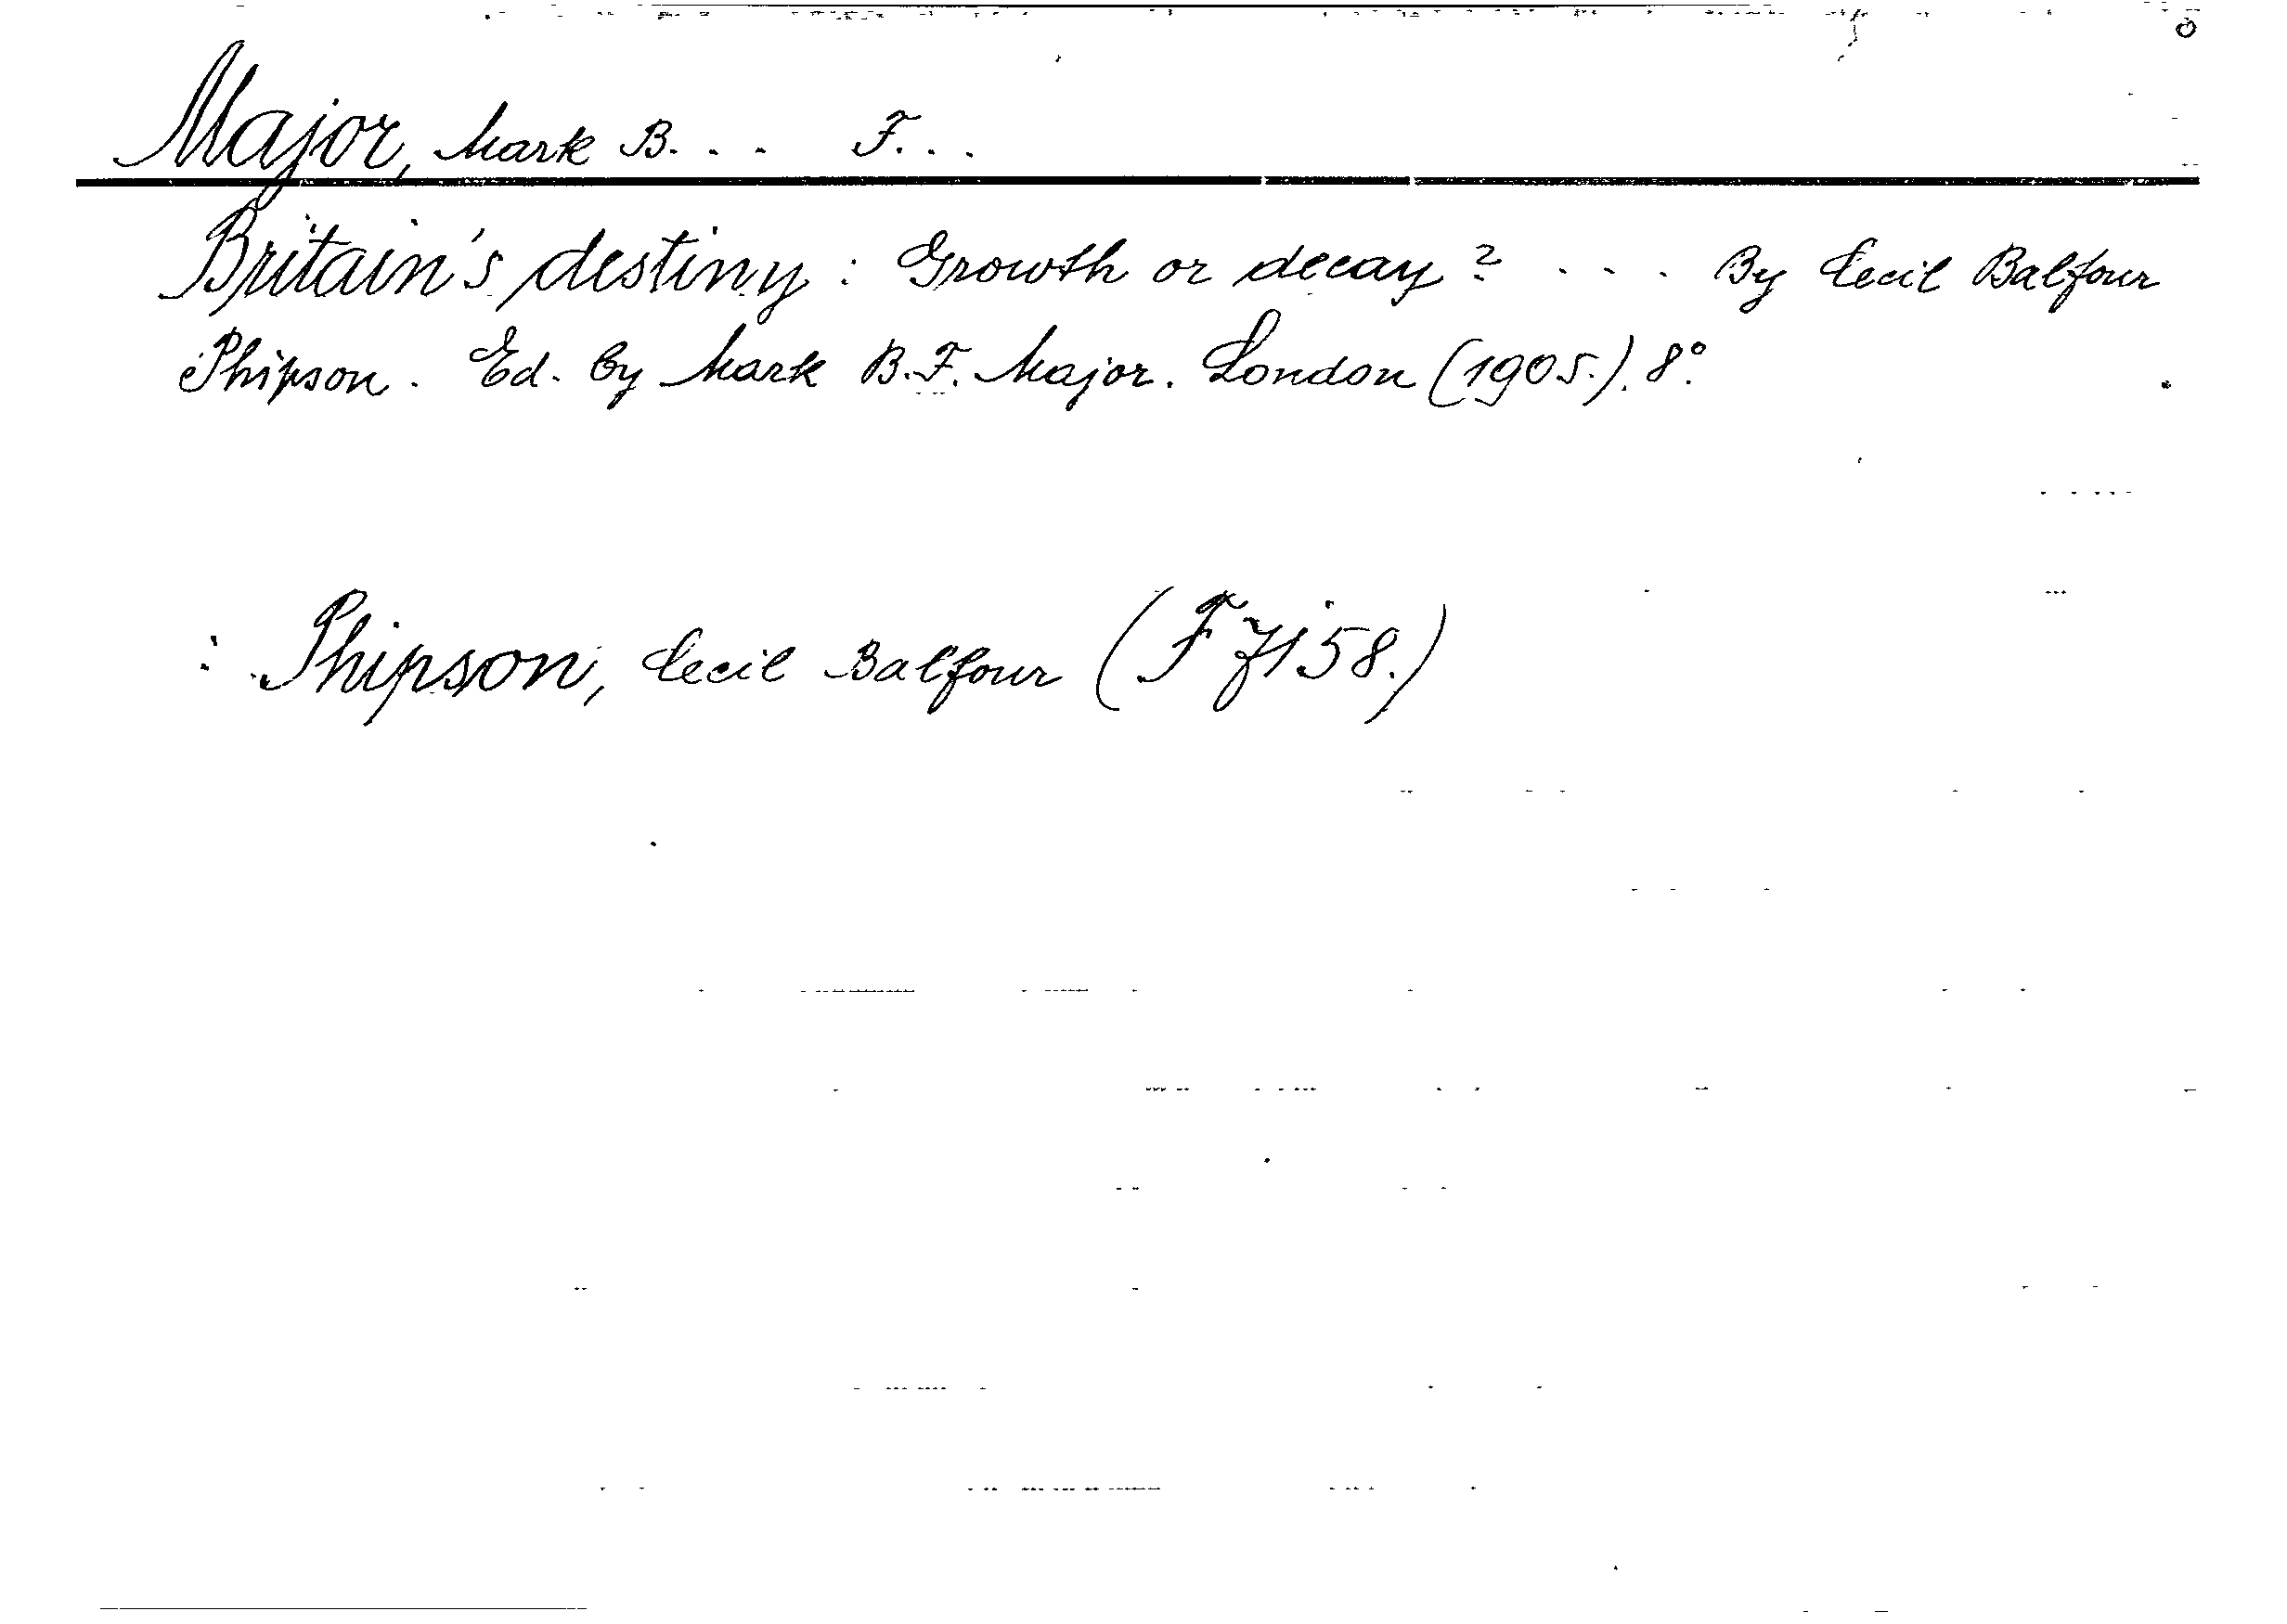 Major, Mark B. . . F. . .
Britain's destiny : Growth or decay ? . . . By Cecil Balfour
Phipson. Ed. by Mark B. F. Major. London (1905.). 8°.
: Phipson, Cecil Balfour (F 7158.)